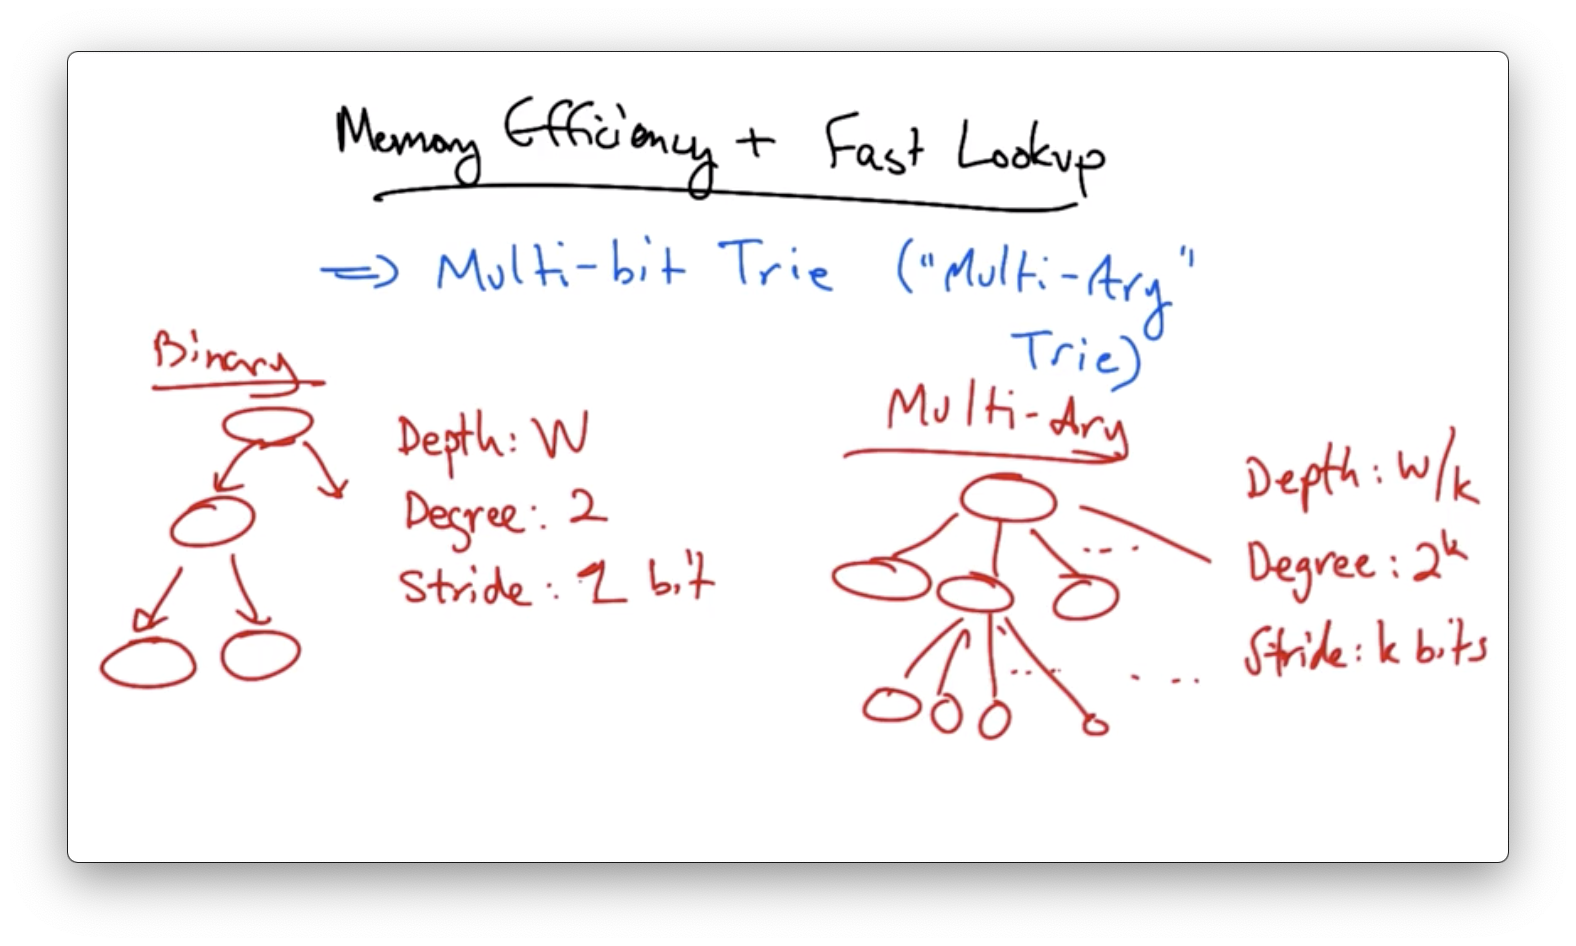 Memory Efficiency + Fast Lookup
=> Multi-bit Trie ("Multi-Ary"
Trie)
Binary
Depth: W
Degree: 2
Stride: 1 bit
Multi-Ary
Depth: W/k
Degree: 2^k
Stride: k bits